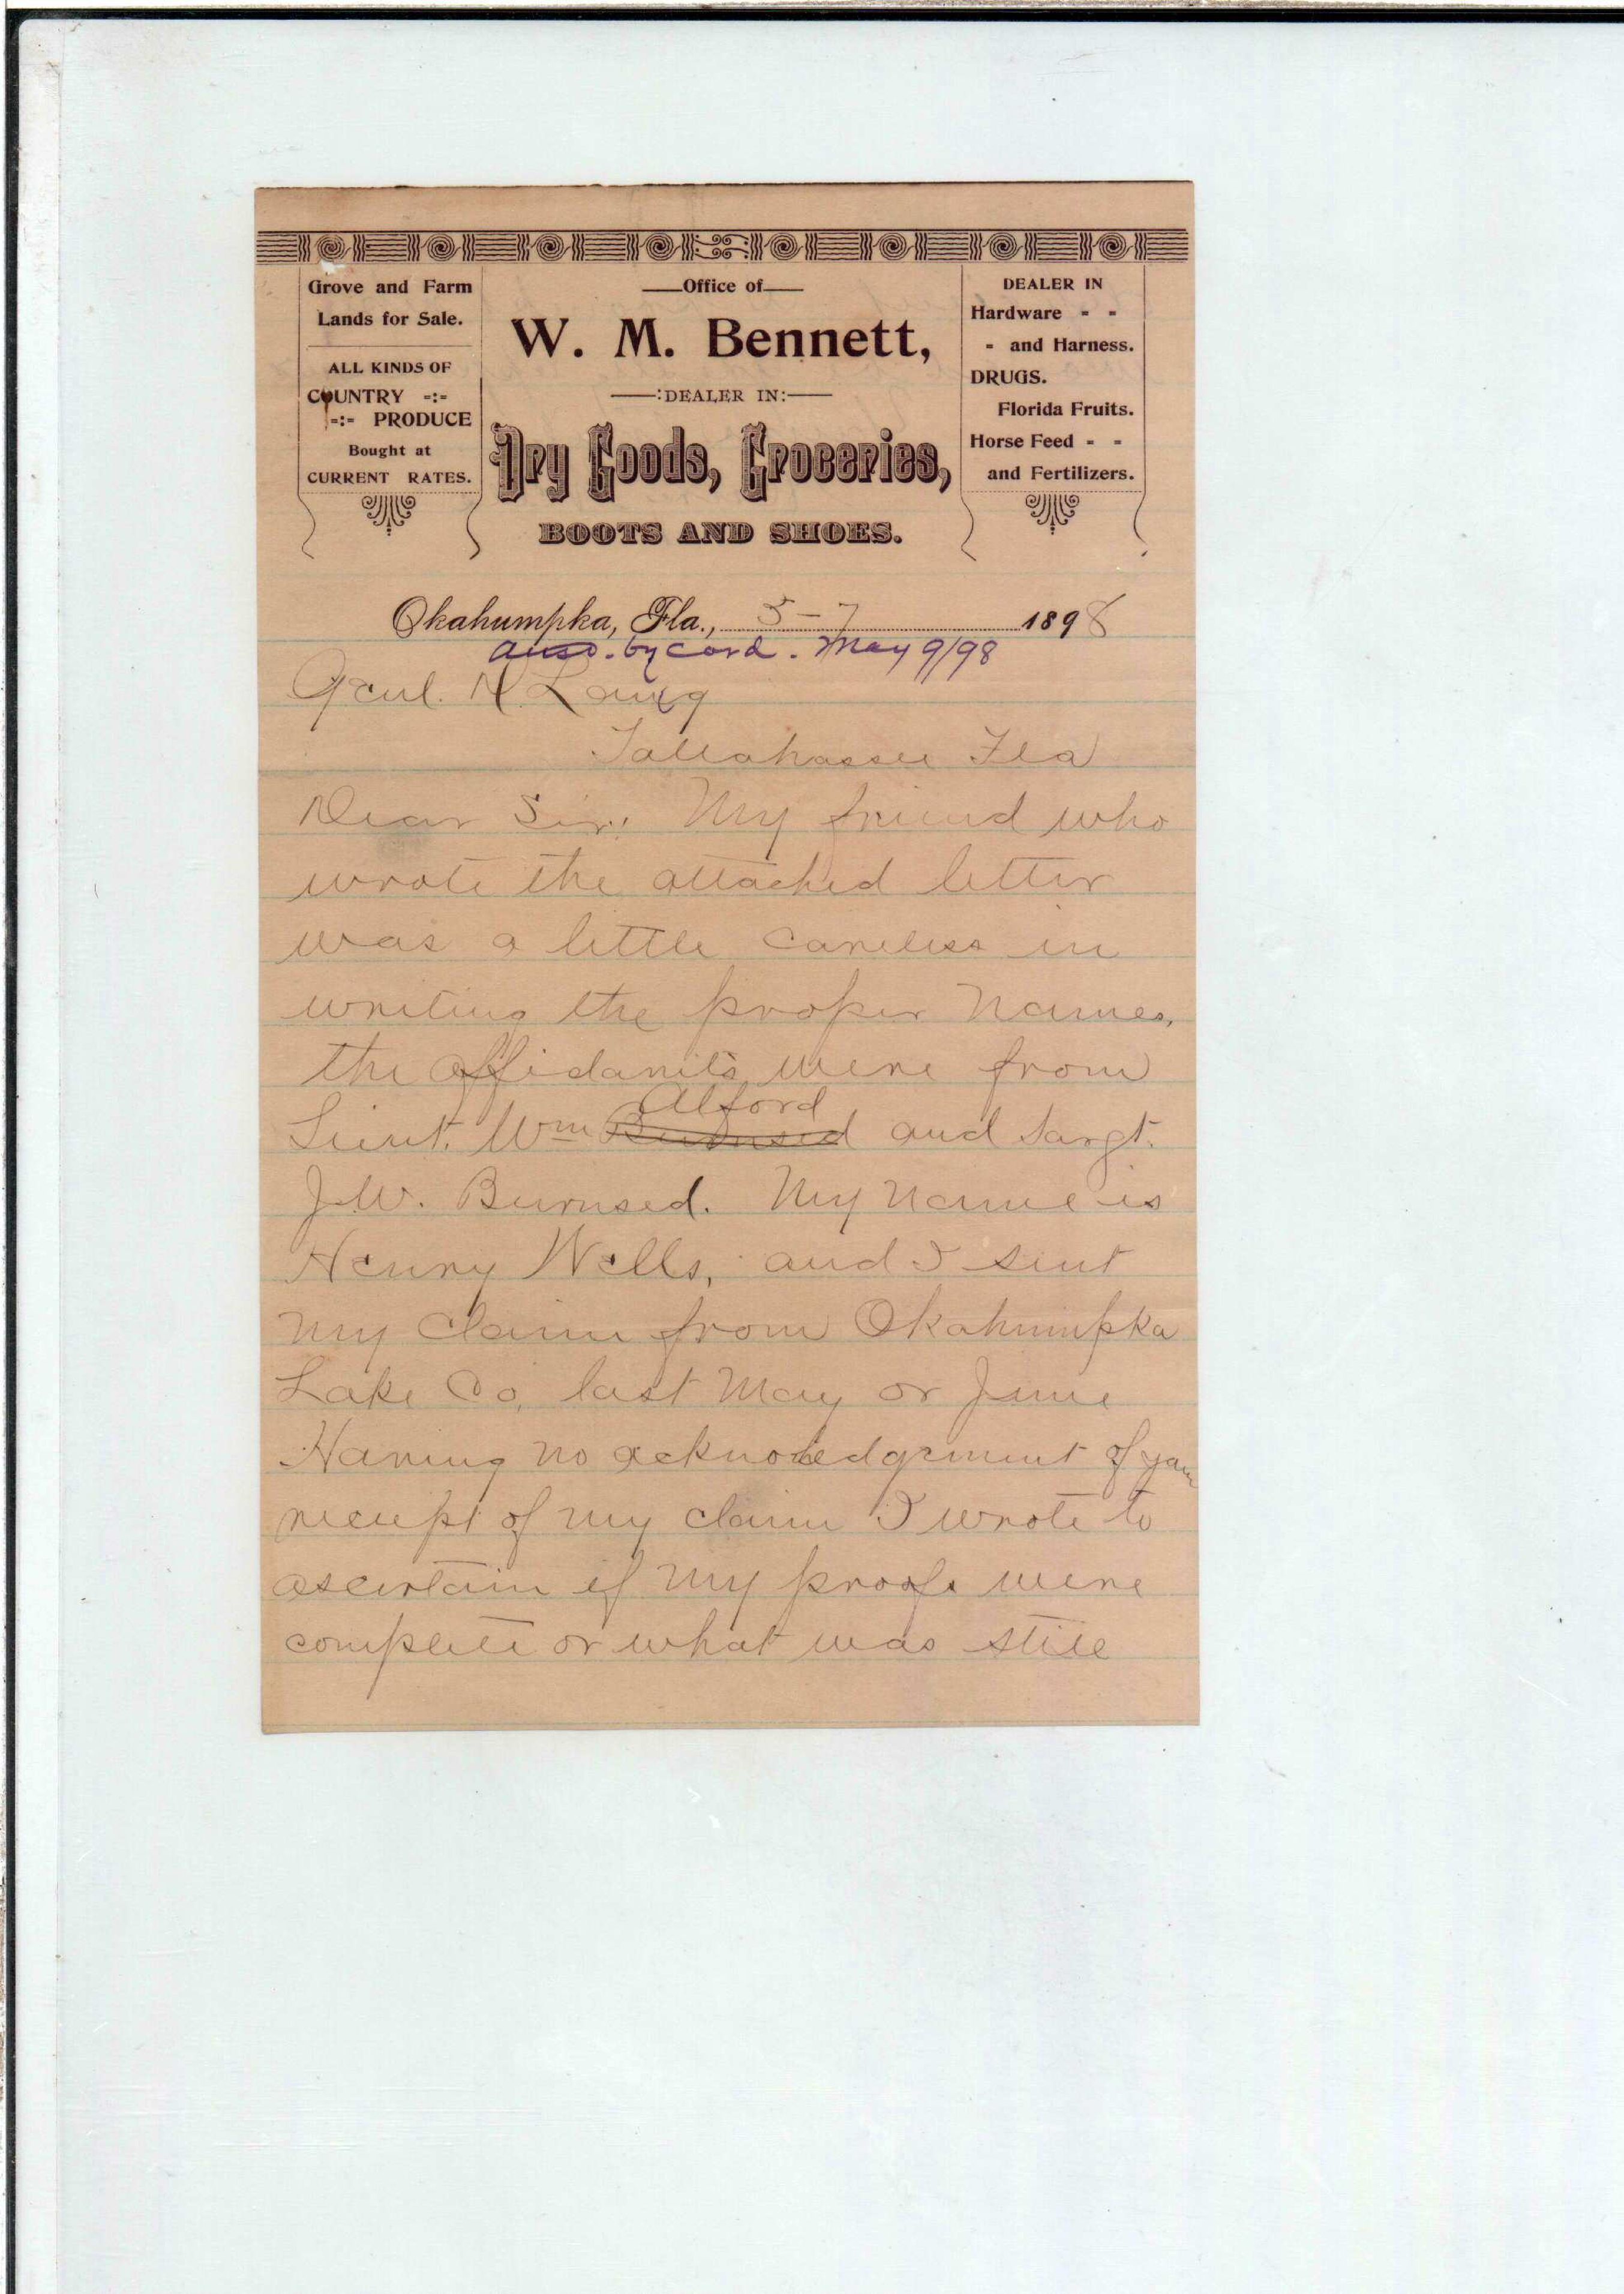 Grove and Farm
Lands for Sale.
ALL KINDS OF
COUNTRY -:-
-:- PRODUCE
Bought at
CURRENT RATES.
Office of
W. M. Bennett,
:DEALER IN:
Dry Goods, Groceries,
BOOTS AND SHOES.
DEALER IN
Hardware - -
- and Harness.
DRUGS.
Florida Fruits.
Horse Feed - -
and Fertilizers.
Okahumpka, Fla., 5-7 1898
by card. May 9/98
Genl. Lang
Tallahassee Fla
Dear Sir! My friend who
wrote the attached letter
was a little careless in
writing the proper names,
the affidavits were from
Alford
Lieut. Wm Burnsed and Sargt.
J.W. Burnsed. My name is
Henry Wells, and I sent
my claim from Okahumpka
Lake Co, last May or June
Having no acknowledgement of your
receipt of my claim I wrote to
ascertain if my proofs were
complete or what was still